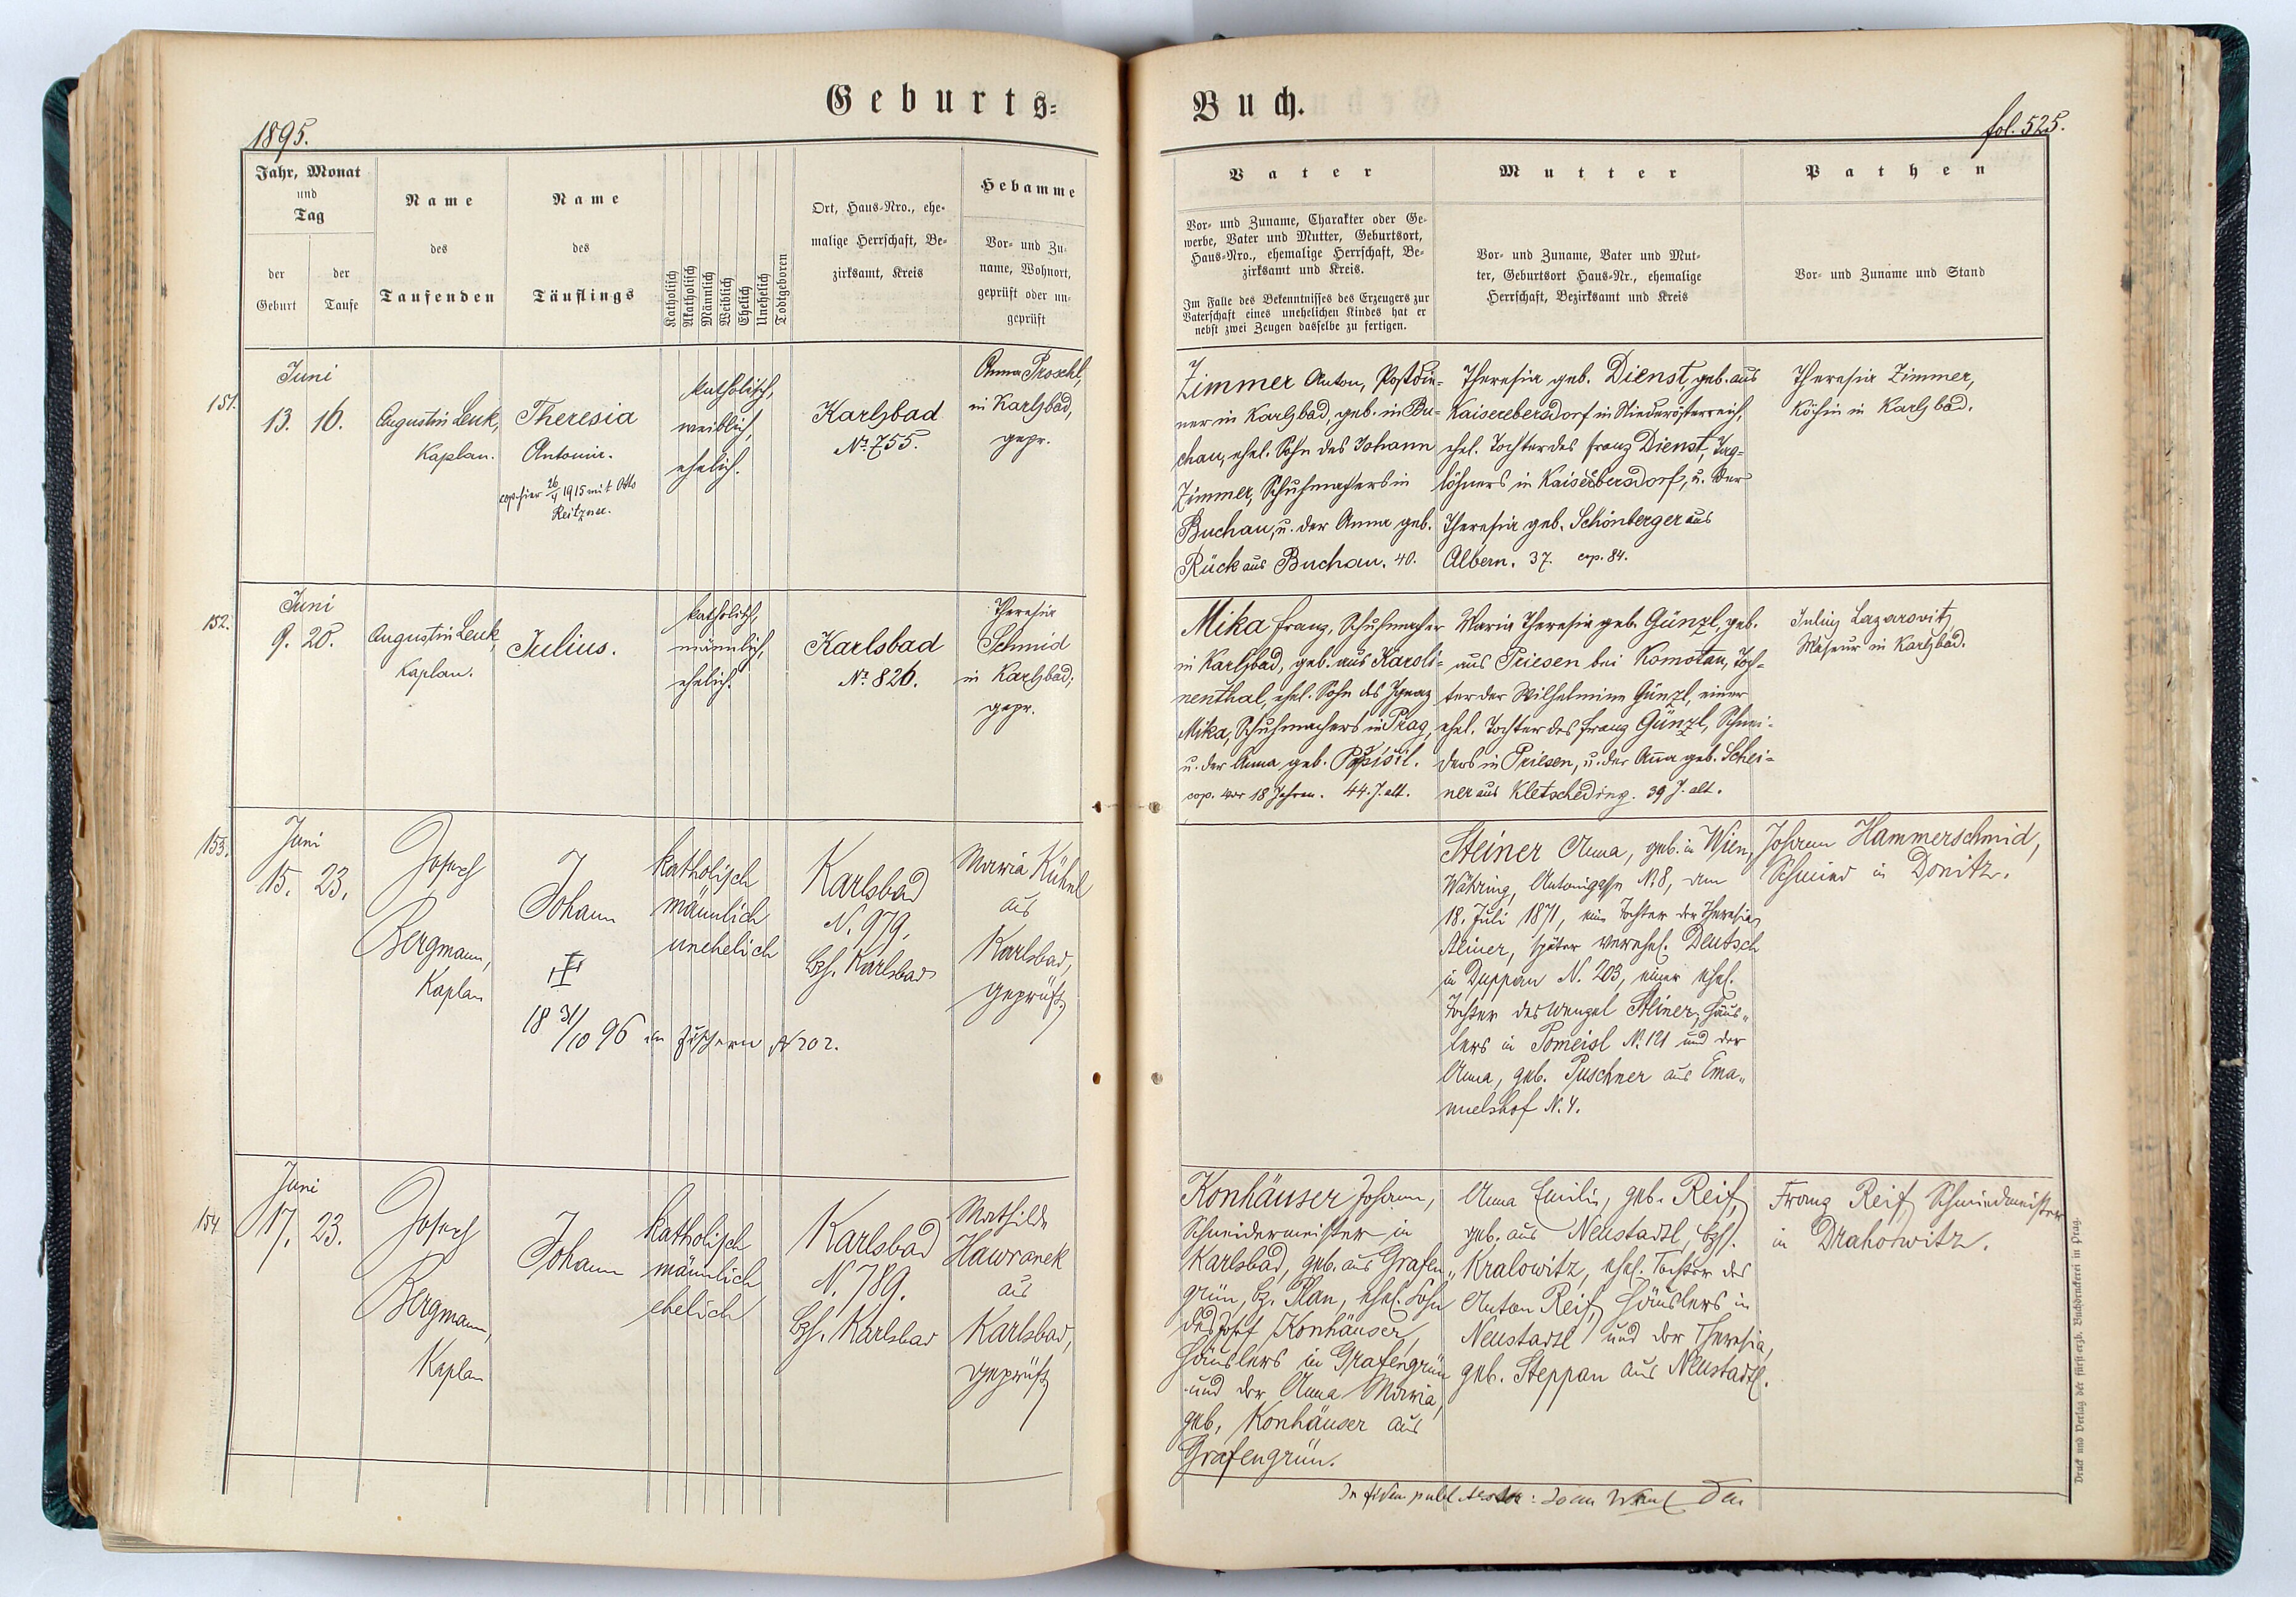 Geburts-
Buch.
1895.
fol. 525.
Jahr, Monat
und
Tag
der
Geburt
der
Taufe
Name
des
Taufenden
Name
des
Täuflings
Katholisch
Akatholisch
Männlich
Weiblich
Ehelich
Unehelich
Todtgeboren
Ort, Haus-Nro., ehe-
malige Herrschaft, Be-
zirksamt, Kreis
Hebamme
Vor- und Zu-
name, Wohnort,
geprüft oder un-
geprüft
Vater
Vor- und Zuname, Charakter oder Ge-
werbe, Vater und Mutter, Geburtsort,
Haus-Nro., ehemalige Herrschaft, Be-
zirksamt und Kreis.
Im Falle des Bekenntnisses des Erzeugers zur
Vaterschaft eines unehelichen Kindes hat er
nebst zwei Zeugen dasselbe zu fertigen.
Mutter
Vor- und Zuname, Vater und Mut-
ter, Geburtsort Haus-Nr., ehemalige
Herrschaft, Bezirksamt und Kreis
Pathen
Vor- und Zuname und Stand
151.
Juni
13. 16.
Augustin Lenk,
Kaplan.
Theresia
Antonie.
cop. hier 26/4 1915 mit Otto
Reitzner.
katholisch,
weiblich,
ehelich.
Karlsbad
Nr. 755.
Anna Proschl,
in Karlsbad,
gepr.
Zimmer Anton, Postdie-
ner in Karlsbad, geb. in Bu-
chau, ehel. Sohn des Johann
Zimmer, Schuhmachers in
Buchau, u. der Anna geb.
Rück aus Buchau. 40.
Theresia geb. Dienst, geb. aus
Kaiserebersdorf in Niederösterreich,
ehel. Tochter des Franz Dienst, Tag-
löhners in Kaiserebersdorf, u. der
Theresia geb. Schönberger aus
Albern. 37. cop. 84.
Theresia Zimmer,
Köchin in Karlsbad.
152.
Juni
9. 20.
Augustin Lenk,
Kaplan.
Julius.
katholisch,
männlich,
ehelich.
Karlsbad
Nr. 826.
Theresia
Schmid
in Karlsbad,
gepr.
Mika Franz, Schuhmacher
in Karlsbad, geb. aus Karoli-
nenthal, ehel. Sohn des Ignaz
Mika, Schuhmachers in Prag,
u. der Anna geb. Pospíšil.
cop. vor 18 Jahren. 44. J. alt.
Maria Theresia geb. Günzl, geb.
aus Priesen bei Komotau, Toch-
ter der Wilhelmine Günzl, einer
ehel. Tochter des Franz Günzl, Schnei-
ders in Priesen, u. der Anna geb. Schei-
ner aus Kletscheding. 39 J. alt.
Julius Lazarovitz
Maseur in Karlsbad.
153.
Juni
15. 23.
Josef
Bergmann,
Kaplan
Johann
18 31/10 96 in Fischern N 202.
katholisch
männlich
unehelich
Karlsbad
N. 979.
Bzh. Karlsbad
Maria Kühnl
aus
Karlsbad,
geprüft
Steiner Anna, geb. in Wien,
Währing, Antonigasse N. 8, am
18. Juli 1871, eine Tochter der Theresia
Steiner, später verehel. Deutsch
in Duppau N. 203, einer ehel.
Tochter des Wenzel Steiner, Häus-
lers in Pomeisl N. 121 und der
Anna, geb. Puschner aus Ema-
nuelshof N. 4.
Johann Hammerschmid,
Schmied in Donitz.
154.
Juni
17. 23.
Josef
Bergmann,
Kaplan
Johann
katholisch
männlich
ehelich
Karlsbad
N. 789.
Bzh. Karlsbad
Mathilde
Hawranek
aus
Karlsbad,
geprüft
Konhäuser Johann,
Schneidermeister in
Karlsbad, geb. aus Grafen-
grün, Bz. Plan, ehel. Sohn
des Josef Konhäuser,
Häuslers in Grafengrün
und der Anna Maria,
geb. Konhäuser aus
Grafengrün.
Anna Emilie, geb. Reif,
geb. aus Neustadtl, Bzh.
Kralowitz, ehel. Tochter des
Anton Reif, Häuslers in
Neustadtl und der Theresia,
geb. Steppan aus Neustadtl.
Franz Reif, Schmiedmeister
in Drahowitz.
In fidem publ.
Druck und Verlag der fürsterzb. Buchdruckerei in Prag.